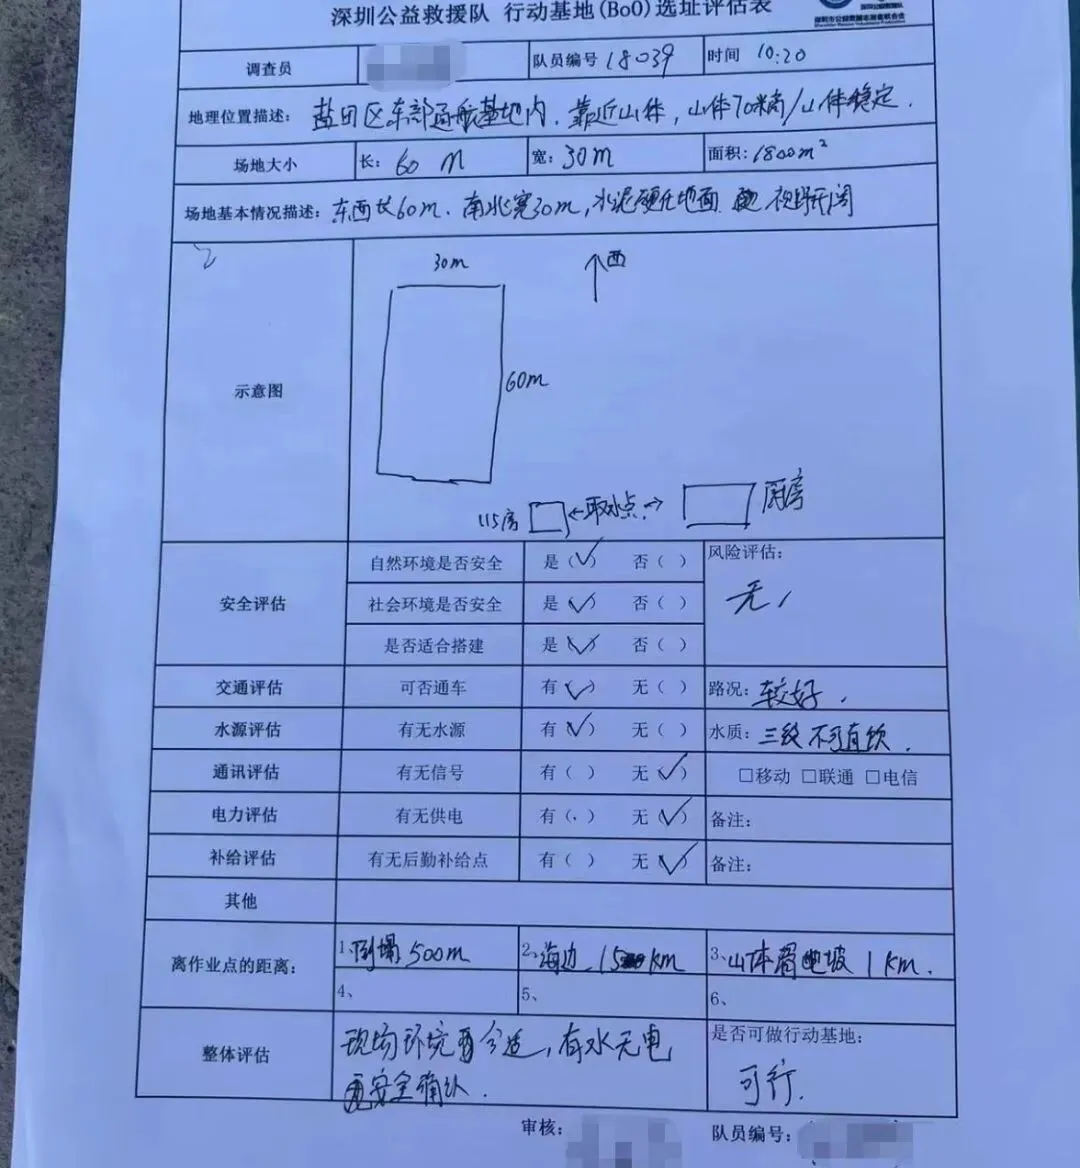 深圳公益救援队 行动基地(BoO)选址评估表
调查员 队员编号 18039 时间 10:20
地理位置描述: 盐田区东部通航基地内. 靠近山体, 山体70米高/山体稳定.
场地大小 长: 60 m 宽: 30m 面积: 1800m²
场地基本情况描述: 东西长60m. 南北宽30m, 水泥硬化地面 视野开阔
30m ↑西
示意图
60m
115房 ←取水点→ 厨房
安全评估 自然环境是否安全 是(✓) 否( ) 风险评估:
社会环境是否安全 是(✓) 否( ) 无
是否适合搭建 是(✓) 否( )
交通评估 可否通车 有(✓) 无( ) 路况: 较好.
水源评估 有无水源 有(✓) 无( ) 水质: 三级 不可直饮.
通讯评估 有无信号 有( ) 无(✓) □移动 □联通 □电信
电力评估 有无供电 有( ) 无(✓) 备注:
补给评估 有无后勤补给点 有( ) 无(✓) 备注:
其他
离作业点的距离: 1、倒塌 500m 2、海边 km 3、山体滑坡 1 km.
4、 5、 6、
整体评估 现场环境合适, 有水无电 是否可做行动基地:
安全确认. 可行.
审核: 队员编号: